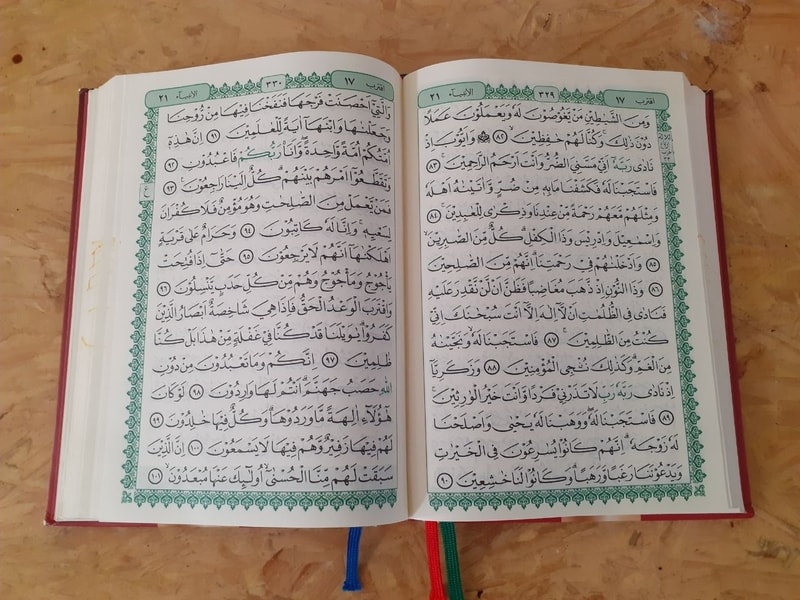 اقترب ١٧ ٣٢٩ الانبياء ٢١
وَمِنَ الشَّيٰطِيْنِ مَنْ يَّغُوْصُوْنَ لَهٗ وَيَعْمَلُوْنَ عَمَلًا
دُوْنَ ذٰلِكَۚ وَكُنَّا لَهُمْ حٰفِظِيْنَ ۙ ٨٢ ۞ وَاَيُّوْبَ اِذْ
نَادٰى رَبَّهٗٓ اَنِّيْ مَسَّنِيَ الضُّرُّ وَاَنْتَ اَرْحَمُ الرّٰحِمِيْنَ ۚ ٨٣
فَاسْتَجَبْنَا لَهٗ فَكَشَفْنَا مَا بِهٖ مِنْ ضُرٍّ وَّاٰتَيْنٰهُ اَهْلَهٗ
وَمِثْلَهُمْ مَّعَهُمْ رَحْمَةً مِّنْ عِنْدِنَا وَذِكْرٰى لِلْعٰبِدِيْنَ ۚ ٨٤
وَاِسْمٰعِيْلَ وَاِدْرِيْسَ وَذَا الْكِفْلِۗ كُلٌّ مِّنَ الصّٰبِرِيْنَ ۙ
٨٥ وَاَدْخَلْنٰهُمْ فِيْ رَحْمَتِنَاۗ اِنَّهُمْ مِّنَ الصّٰلِحِيْنَ
٨٦ وَذَا النُّوْنِ اِذْ ذَّهَبَ مُغَاضِبًا فَظَنَّ اَنْ لَّنْ نَّقْدِرَ عَلَيْهِ
فَنَادٰى فِى الظُّلُمٰتِ اَنْ لَّآ اِلٰهَ اِلَّآ اَنْتَ سُبْحٰنَكَ اِنِّيْ
كُنْتُ مِنَ الظّٰلِمِيْنَ ۚ ٨٧ فَاسْتَجَبْنَا لَهٗۙ وَنَجَّيْنٰهُ
مِنَ الْغَمِّۗ وَكَذٰلِكَ نُـْۨجِى الْمُؤْمِنِيْنَ ٨٨ وَزَكَرِيَّآ
اِذْ نَادٰى رَبَّهٗ رَبِّ لَا تَذَرْنِيْ فَرْدًا وَّاَنْتَ خَيْرُ الْوٰرِثِيْنَ ۚ
٨٩ فَاسْتَجَبْنَا لَهٗۖ وَوَهَبْنَا لَهٗ يَحْيٰى وَاَصْلَحْنَا
لَهٗ زَوْجَهٗۗ اِنَّهُمْ كَانُوْا يُسٰرِعُوْنَ فِى الْخَيْرٰتِ
وَيَدْعُوْنَنَا رَغَبًا وَّرَهَبًاۗ وَكَانُوْا لَنَا خٰشِعِيْنَ ٩٠
اقترب ١٧ ٣٣٠ الانبياء ٢١
وَالَّتِيْٓ اَحْصَنَتْ فَرْجَهَا فَنَفَخْنَا فِيْهَا مِنْ رُّوْحِنَا
وَجَعَلْنٰهَا وَابْنَهَآ اٰيَةً لِّلْعٰلَمِيْنَ ٩١ اِنَّ هٰذِهٖٓ
اُمَّتُكُمْ اُمَّةً وَّاحِدَةًۖ وَّاَنَا رَبُّكُمْ فَاعْبُدُوْنِ ٩٢
وَتَقَطَّعُوْٓا اَمْرَهُمْ بَيْنَهُمْۗ كُلٌّ اِلَيْنَا رٰجِعُوْنَ ۚ ٩٣
فَمَنْ يَّعْمَلْ مِنَ الصّٰلِحٰتِ وَهُوَ مُؤْمِنٌ فَلَا كُفْرَانَ
لِسَعْيِهٖۚ وَاِنَّا لَهٗ كَاتِبُوْنَ ٩٤ وَحَرَامٌ عَلٰى قَرْيَةٍ
اَهْلَكْنٰهَآ اَنَّهُمْ لَا يَرْجِعُوْنَ ٩٥ حَتّٰىٓ اِذَا فُتِحَتْ
يَأْجُوْجُ وَمَأْجُوْجُ وَهُمْ مِّنْ كُلِّ حَدَبٍ يَّنْسِلُوْنَ ٩٦
وَاقْتَرَبَ الْوَعْدُ الْحَقُّ فَاِذَا هِيَ شَاخِصَةٌ اَبْصَارُ الَّذِيْنَ
كَفَرُوْاۗ يٰوَيْلَنَا قَدْ كُنَّا فِيْ غَفْلَةٍ مِّنْ هٰذَا بَلْ كُنَّا
ظٰلِمِيْنَ ٩٧ اِنَّكُمْ وَمَا تَعْبُدُوْنَ مِنْ دُوْنِ
اللّٰهِ حَصَبُ جَهَنَّمَۗ اَنْتُمْ لَهَا وَارِدُوْنَ ٩٨ لَوْ كَانَ
هٰٓؤُلَاۤءِ اٰلِهَةً مَّا وَرَدُوْهَاۗ وَكُلٌّ فِيْهَا خٰلِدُوْنَ ٩٩
لَهُمْ فِيْهَا زَفِيْرٌ وَّهُمْ فِيْهَا لَا يَسْمَعُوْنَ ١٠٠ اِنَّ الَّذِيْنَ
سَبَقَتْ لَهُمْ مِّنَّا الْحُسْنٰىٓۙ اُولٰۤىِٕكَ عَنْهَا مُبْعَدُوْنَ ۙ ١٠١